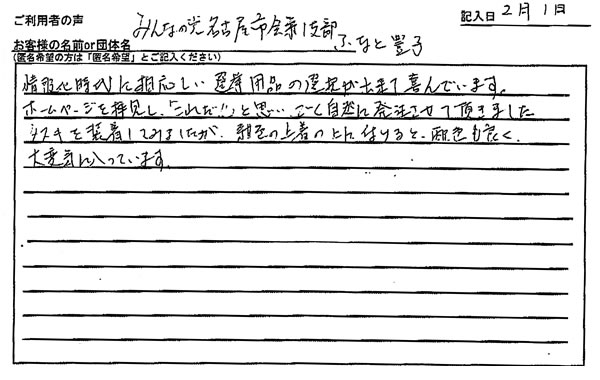 ご利用者の声
記入日 2月1日
みんなの党名古屋市会第1支部
お客様の名前or団体名 ふなと 豊子
(匿名希望の方は「匿名希望」とご記入ください)
情報化時代に相応しい選挙用品の選択が出来て喜んでいます。
ホームページを拝見し、「これだ!!」と思い、ごく自然に発注させて頂きました
タスキを装着してみましたが、紺色の上着の上に付けると、配色も良く、
大変気に入っています。